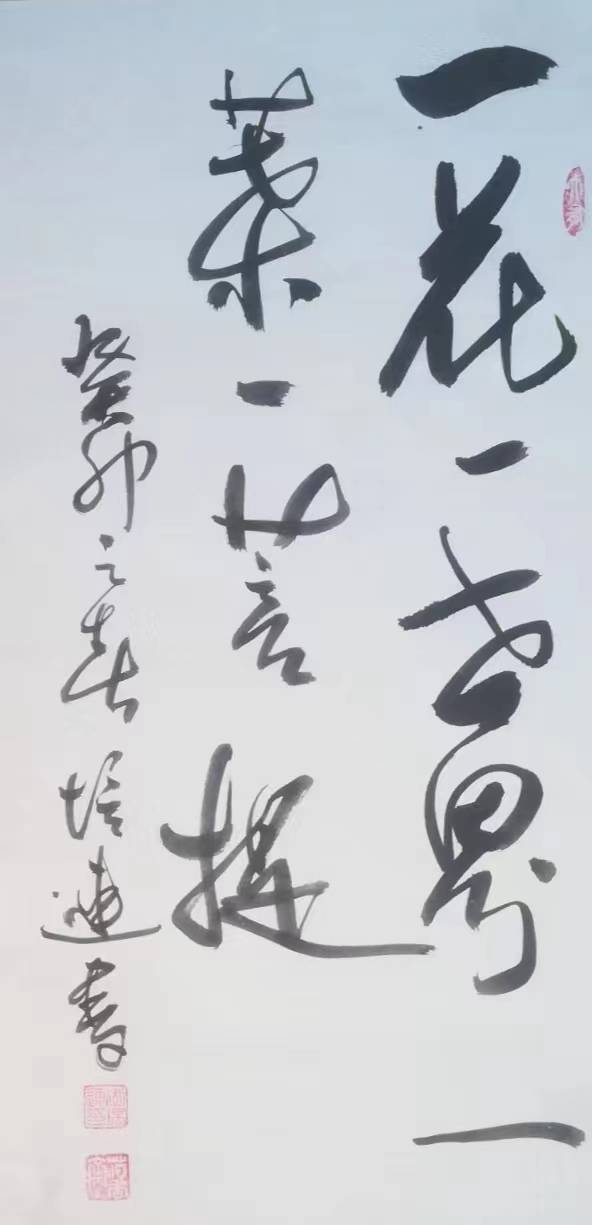 一花一世界一
葉一菩提
癸卯之春培连書